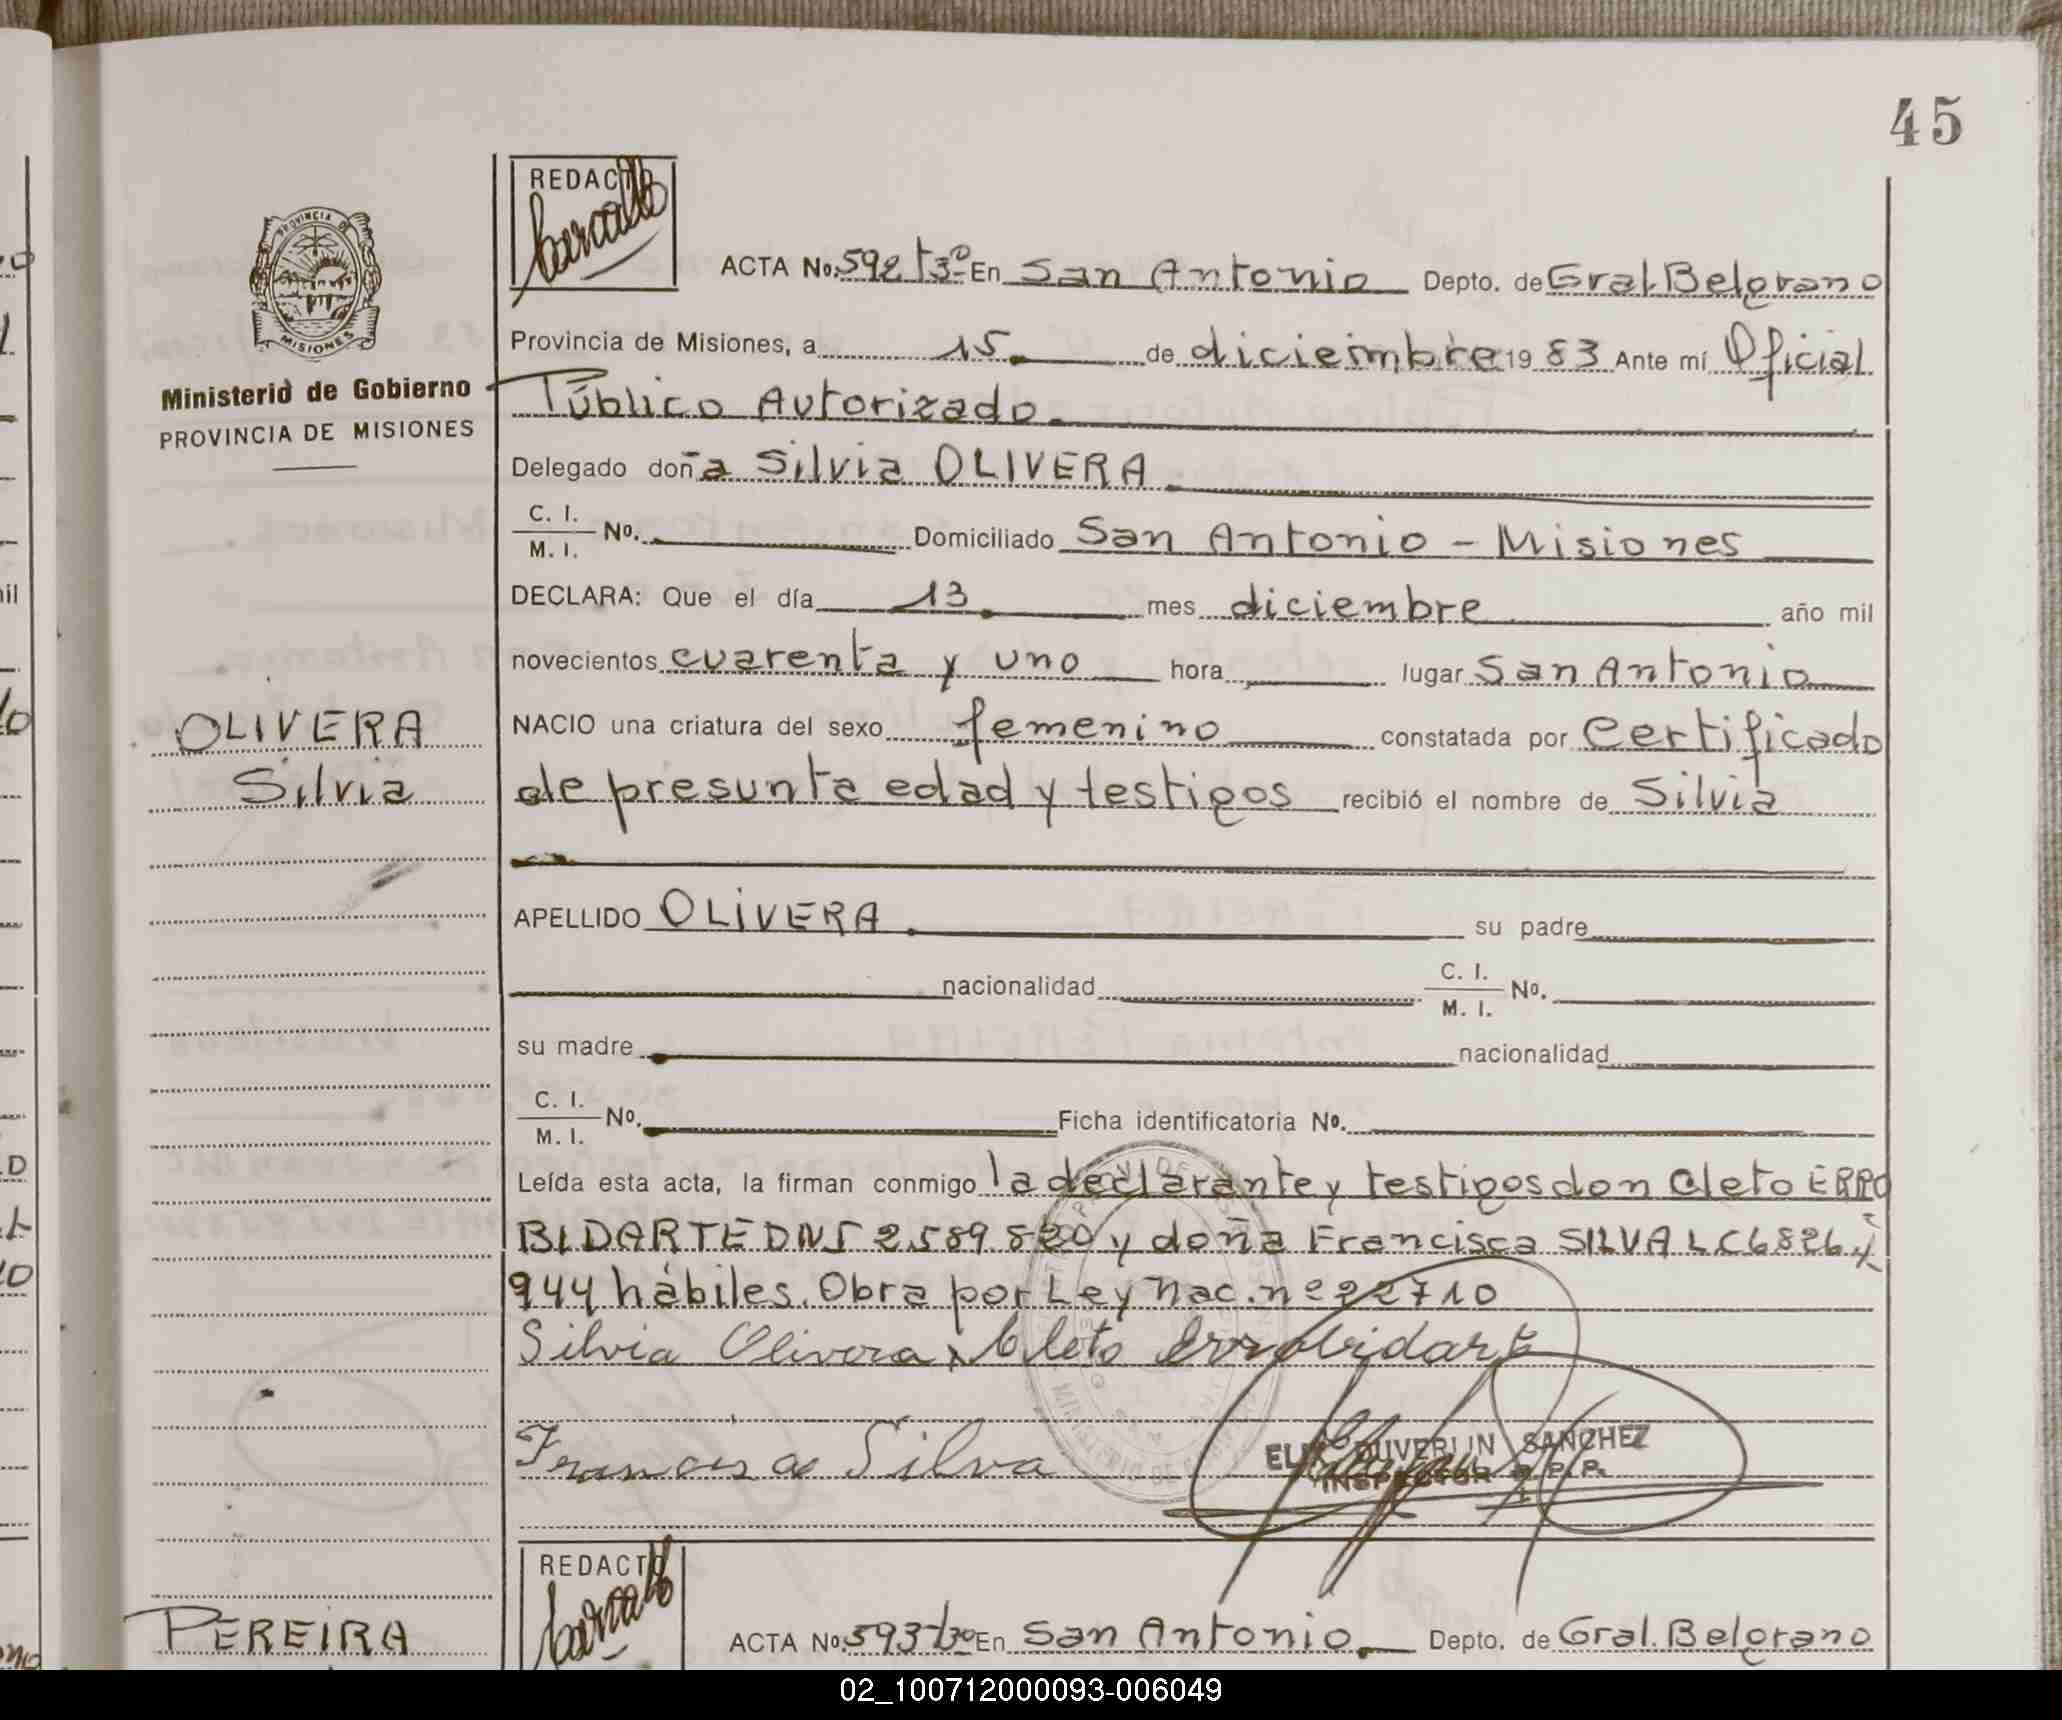 45
REDACTO
ACTA No. 592 tº 3º En San Antonio Depto. de Gral. Belgrano
PROVINCIA DE
MISIONES
Provincia de Misiones, a 15 de diciembre 19 83 Ante mí Oficial
Ministerio de Gobierno
PROVINCIA DE MISIONES
Público Autorizado
Delegado doña Silvia OLIVERA
C. I.
M. I. No. Domiciliado San Antonio - Misiones
DECLARA: Que el día 13 mes diciembre año mil
novecientos cuarenta y uno hora lugar San Antonio
OLIVERA
Silvia
NACIO una criatura del sexo femenino constatada por Certificado
de presunta edad y testigos recibió el nombre de Silvia
APELLIDO OLIVERA su padre
nacionalidad C. I.
M. I. No.
su madre nacionalidad
C. I.
M. I. No. Ficha identificatoria No.
Leída esta acta, la firman conmigo la declarante y testigos don Cleto ERRO
BIDARTE DNI 2.589.820 y doña Francisca SILVA LC 6826
944 hábiles. Obra por Ley Nac. nº 22710
Silvia Olivera, Cleto Errobidarte
Francisca Silva
DUVERLIN SANCHEZ
INSPECTOR R. P. P.
REDACTO
PEREIRA
ACTA No. 593 tº 3º En San Antonio Depto. de Gral. Belgrano
02_100712000093-006049